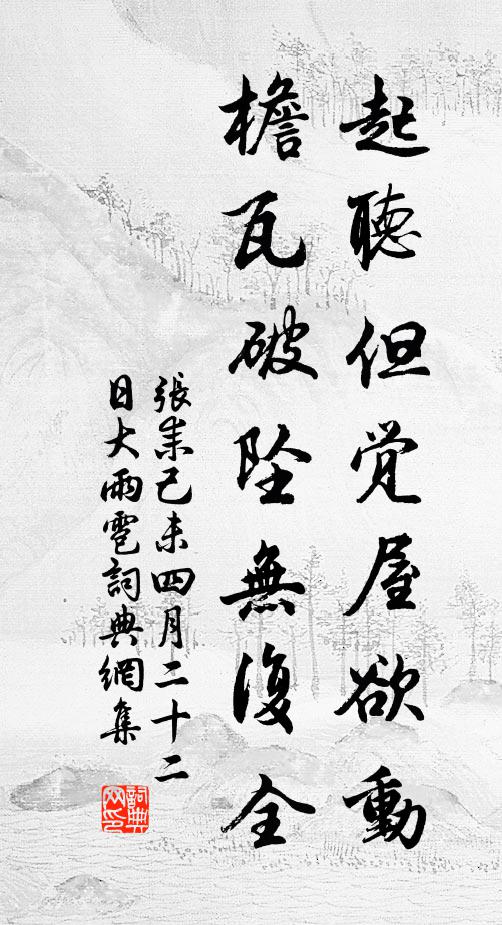 起聽但覺屋欲動
檐瓦破墜無復全
張耒己未四月二十二
日大雨雹詞典網集
詞典
网印